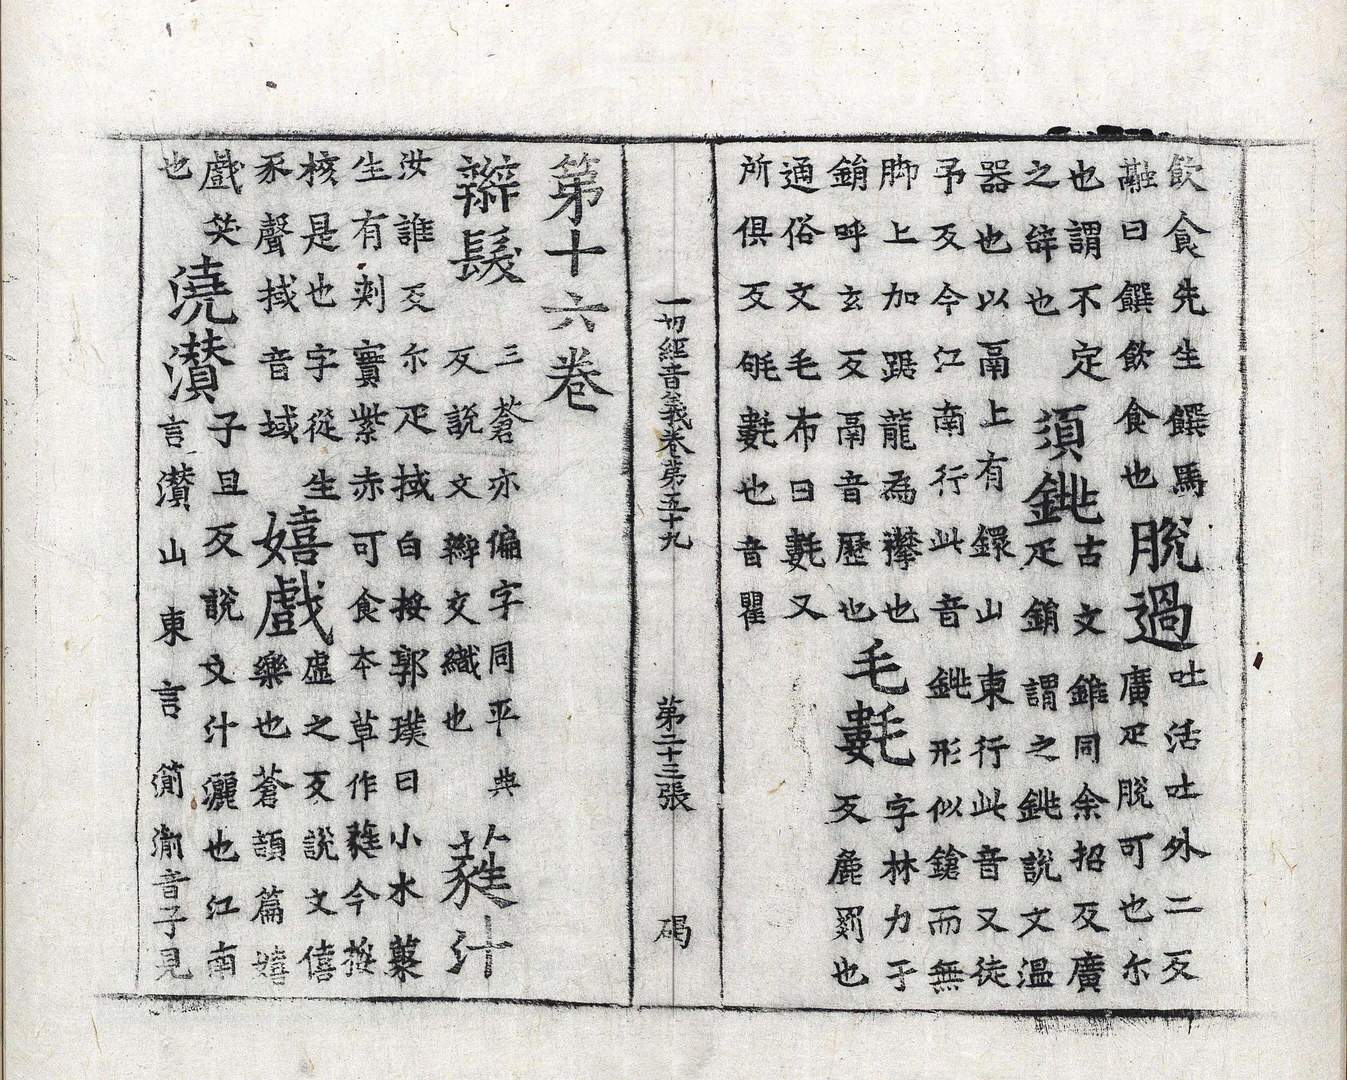 飲食先生饌馬
融曰饌飲食也
脫過
吐活吐外二反
廣疋脫可也尒
也謂不定
之辝也
須銚
古文錐同余招反廣
疋銷謂之銚說文溫
器也以鬲上有鐶山東行此音又徒
予反今江南行此音銚形似鎗而無
脚上加踞龍為襻也
銷呼玄反鬲音歷也
毛氀
字林力于
反麁罽也
通俗文毛布曰氀又
所俱反氀也音瞿
一切經音義卷第五十九 第二十三張 碣
第十六卷
辮髮
三蒼亦偏字同平典
反說文辮交織也
蕤汁
汝誰反尒疋棫白桵郭璞曰小木叢
生有刾實紫赤可食本草作蕤今桵
核是也字從生
豕聲棫音域
嬉戲
虛之反說文僖
樂也蒼頡篇嬉
戲笑
也
澆灒
子旦反說文汁灑也江南
言灒山東言湔湔音子見